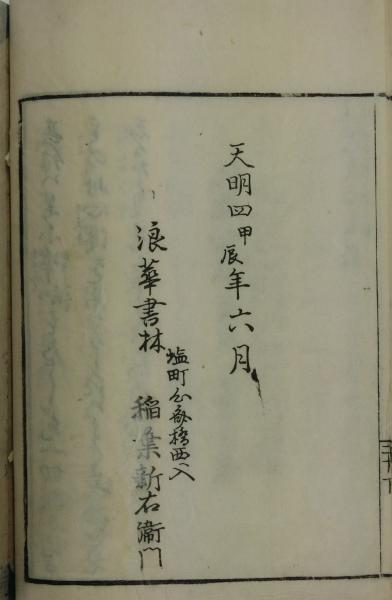 天明四甲辰年六月
浪華書林
塩町心斎橋西入
稲葉新右衛門